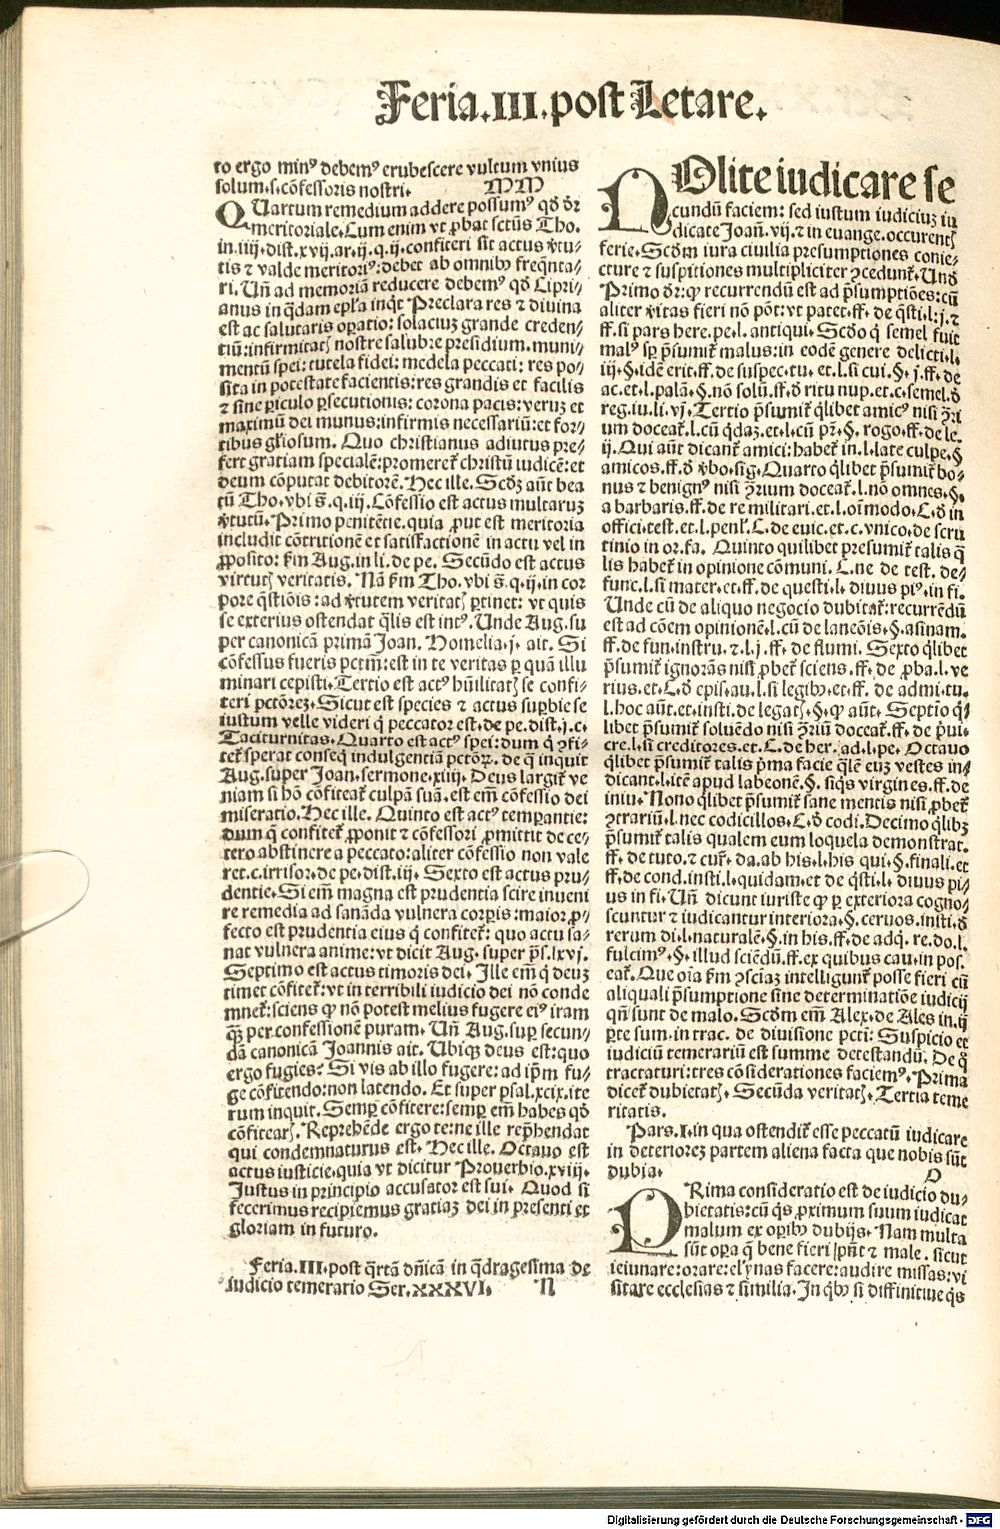 Feria.III.post Letare.
to ergo minꝰ debemꝰ erubescere vultum vnius
solum.s.cōfessoris nostri. MM
QUartum remedium addere possumꝰ qđ dr̄
meritoriale. Cum enim vt ꝓbat sctūs Tho.
in.iiij.dist.xvij.ar.ij.q.ij.confiteri sit actus v̓tu-
tis ⁊ valde meritoriꝰ: debet ab omnibꝰ freq̄nta-
ri. Un̄ ad memoriā reducere debemꝰ qđ Cipri-
anus in q̄dam epl̄a inqt̓ Preclara res ⁊ diuina
est ac salutaris oꝑatio: solaciuꝫ grande creden-
tiū: infirmitatꝭ nostre salubre presidium. muni-
mentū spei: tutela fidei: medela peccati: res po-
sita in potestate facientis: res grandis et facilis
⁊ sine ꝑiculo ꝑsecutionis: corona pacis: veruꝫ et
maximū dei munus: infirmis necessariū: et for-
tibus gl̄iosum. Quo christianus adiutus pre-
fert gratiam specialē: promeret̃ christū iudicē: et
deum cōputat debitorē. Hec ille. Scđꝫ aūt bea
tū Tho. vbi s̄. q. iij. Cōfessio est actus multaruꝫ
v̓tutū. Primo penitētie. quia ꝓut est meritoria
includit cōtritionē et satisfactionē in actu vel in
ꝓposito: ẜm Aug. in li. de pe. Secūdo est actus
virtutꝭ veritatis. Nā ẜm Tho. vbi s̄. q. ij. in cor
pore q̄stiōis: ad v̓tutem veritatꝭ ꝑtinet: vt quis
se exterius ostendat q̄lis est intꝰ. Unde Aug. su
per canonicā primā Joan. Homelia.j. ait. Si
cōfessus fueris pctm̄: est in te veritas ꝑ quā illu
minari cepisti. Tertio est actꝰ hūilitatꝭ se confi-
teri pctōreꝫ. Sicut est species ⁊ actus suꝑbie se
iustum velle videri q̓ peccator est. de pe. dist. j. c.
Taciturnitas. Quarto est actꝰ spei: dum q̓ ꝯfi-
tet̃ sperat conseq̓ indulgentiā pctōꝝ. de q̓ inquit
Aug. super Joan. sermone. xiiij. Deus largit̃ ve
niam si hō cōfiteat̃ culpā suā. est em̄ cōfessio dei
miseratio. Hec ille. Quinto est actꝰ temperantie:
dum q̓ confitet̃ ꝓponit ⁊ cōfessori ꝓmittit de ce-
tero abstinere a peccato: aliter cōfessio non vale
ret. c. irrisor. de pe. dist. iij. Sexto est actus pru-
dentie. Si em̄ magna est prudentia scire inueni
re remedia ad sanāda vulnera corꝑis: maior ꝓ-
fecto est prudentia eius q̓ confitet̃: quo actu sa-
nat vulnera anime: vt dicit Aug. super ps̄. lxvj.
Septimo est actus timoris dei. Ille em̄ q̓ deuꝫ
timet cōfitet̃: vt in terribili iudicio dei nō conde
mnet̃: sciens ꝙ nō potest melius fugere eiꝰ iram
q̄ꝫ per confessionē puram. Un̄ Aug. suꝑ secun-
dā canonicā Joannis ait. Ubiqꝫ deus est: quo
ergo fugies? Si vis ab illo fugere: ad ip̄m fu-
ge cōfitendo: non latendo. Et super psal. xcix. ite
rum inquit. Semꝑ cōfitere: semꝑ em̄ habes qđ
cōfitearꝭ. Reprehēde ergo te: ne ille rep̄hendat
qui condemnaturus est. Hec ille. Octauo est
actus iusticie. quia vt dicitur Prouerbio. xviij.
Justus in principio accusator est sui. Quod si
fecerimus recipiemus gratiaꝫ dei in presenti et
gloriam in futuro.
Feria.III.post q̄rtā dn̄icā in q̄dragesima de
iudicio temerario Ser.XXXVI. N
NOlite iudicare se
cundū faciem: sed iustum iudiciuꝫ iu
dicate Joan̄. vij. ⁊ in euange. occurentꝭ
ferie. Scđm iura ciuilia presumptiones conie-
cture ⁊ suspitiones multipliciter ꝯcedunt̃. Unđ
Primo dr̄: ꝙ recurrendū est ad p̄sumptiōes: cū
aliter v̓itas fieri nō pōt: vt patet. ff. de q̄sti. l. j. ⁊
ff. si pars here. pe. l. antiqui. Scđo q̓ semel fuit
malꝰ sꝑ p̄sumit̃ malus: in eodē genere delicti. l.
iij. §. idē erit. ff. de suspec. tu. et. l. si cui. §. j. ff. de
ac. et. l. palā. §. nō solū. ff. đ ritu nup. et. c. semel. đ
reg. iu. li. vj. Tertio p̄sumit̃ q̄libet amicꝰ nisi ꝯ̄ri
um doceat̃. l. cū q̄daꝫ. et. l. cū pr̄. §. rogo. ff. de le.
ij. Qui aūt dicant̃ amici: habet̃ in. l. late culpe. §
amicos. ff. đ v̓bo. sig. Quarto q̄libet p̄sumit̃ bo-
nus ⁊ benignꝰ nisi ꝯ̄rium doceat̃. l. nō omnes. §.
a barbaris. ff. de re militari. et. l. oī modo. C. đ in
offici. test. et. l. penl̓. C. de euic. et. c. vnico. de scru
tinio in or. fa. Quinto quilibet presumit̃ talis q̄
lis habet̃ in opinione cōmuni. C. ne de test. de-
func. l. si mater. et. ff. de questi. l. diuus piꝰ. in fi.
Unde cū de aliquo negocio dubitat̃: recurrēdū
est ad cōem opinionē. l. cū de laneōis. §. asinam.
ff. de fun. instru. ⁊. l. j. ff. de flumi. Sexto q̄libet
p̄sumit̃ ignorās nisi ꝓbet̃ sciens. ff. de ꝓba. l. ve
rius. et. C. đ epis. au. l. si legibꝰ. et. ff. de admi. tu.
l. hoc aūt. et. insti. de legatꝭ. §. ꝙ aūt. Septio q̄-
libet p̄sumit̃ soluēdo nisi ꝯ̄riū doceat̃. ff. de p̄ui.
cre. l. si creditores. et. C. de her. ad. l. pe. Octauo
q̄libet p̄sumit̃ talis p̄ma facie q̄lē euꝫ vestes in-
dicant. l. itē apud labeonē. §. siq̄s virgines. ff. de
iniu. Nono q̄libet p̄sumit̃ sane mentis nisi ꝓbet̃
ꝯtrariū. l. nec codicillos. C. đ codi. Decimo q̄libꝫ
p̄sumit̃ talis qualem eum loquela demonstrat.
ff. de tuto. ⁊ cur̃. da. ab his. l. his qui. §. finali. et
ff. de cond. insti. l. quidam. et de q̄sti. l. diuus pi-
us in fi. Un̄ dicunt iuriste ꝙ ꝑ exteriora cogno-
scuntur ⁊ iudicantur interiora. §. ceruos. insti. đ
rerum di. l. naturalē. §. in his. ff. de adq̓. re. do. l.
fulcimꝰ. §. illud sciēdū. ff. ex quibus cau. in pos.
eat̃. Que oīa ẜm ꝯsciaꝫ intelligunt̃ posse fieri cū
aliquali p̄sumptione sine determinatiōe iudicij
qn̄ sunt de malo. Scđm em̄ Alex. de Ales in. ij
ꝑte sum. in trac. de diuisione pcti: Suspicio et
iudiciū temerariū est summe detestandū. De q̓
tractaturi: tres cōsiderationes faciemꝰ. Prima
dicet̃ dubietatꝭ. Secūda veritatꝭ. Tertia teme
ritatis.
Pars.I.in qua ostendit̃ esse peccatū iudicare
in deterioreꝫ partem aliena facta que nobis sūt
dubia. O
PRima consideratio est de iudicio du-
bietatis: cū q̄s ꝓximum suum iudicat
malum ex oꝑibꝰ dubijs. Nam multa
sūt oꝑa q̄ bene fieri pn̄t ⁊ male. sicut
ieiunare: orare: elynas facere: audire missas: vi
sitare ecclesias ⁊ similia. In qibꝰ si diffinitiue q̄s
Digitalisierung gefördert durch die Deutsche Forschungsgemeinschaft - DFG